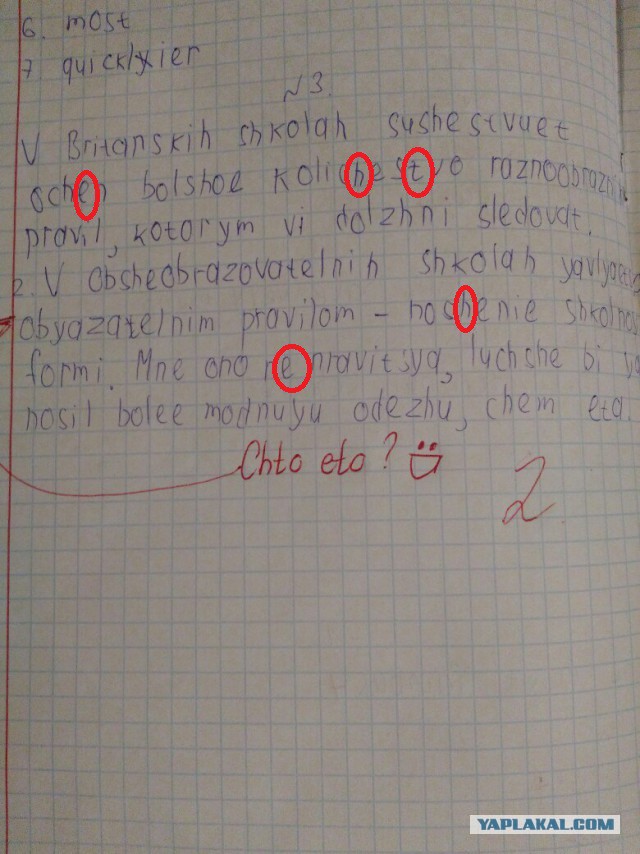 6. most
7 quicklyier
N3.
V Britanskih shkolah sushestvuet
ochen bolshoe kolichestvo
pravil, kotorym vi dolzhni sledovat.
2. V obsheobrazovatelnih shkolah
obyazatelnim pravilom - noshenie
formi. Mne ono ne nravitsya, luchshe bi ya
nosil bolee modnuyu odezhu, chem eta.
Chto eto?
2
YAPLAKAL.COM